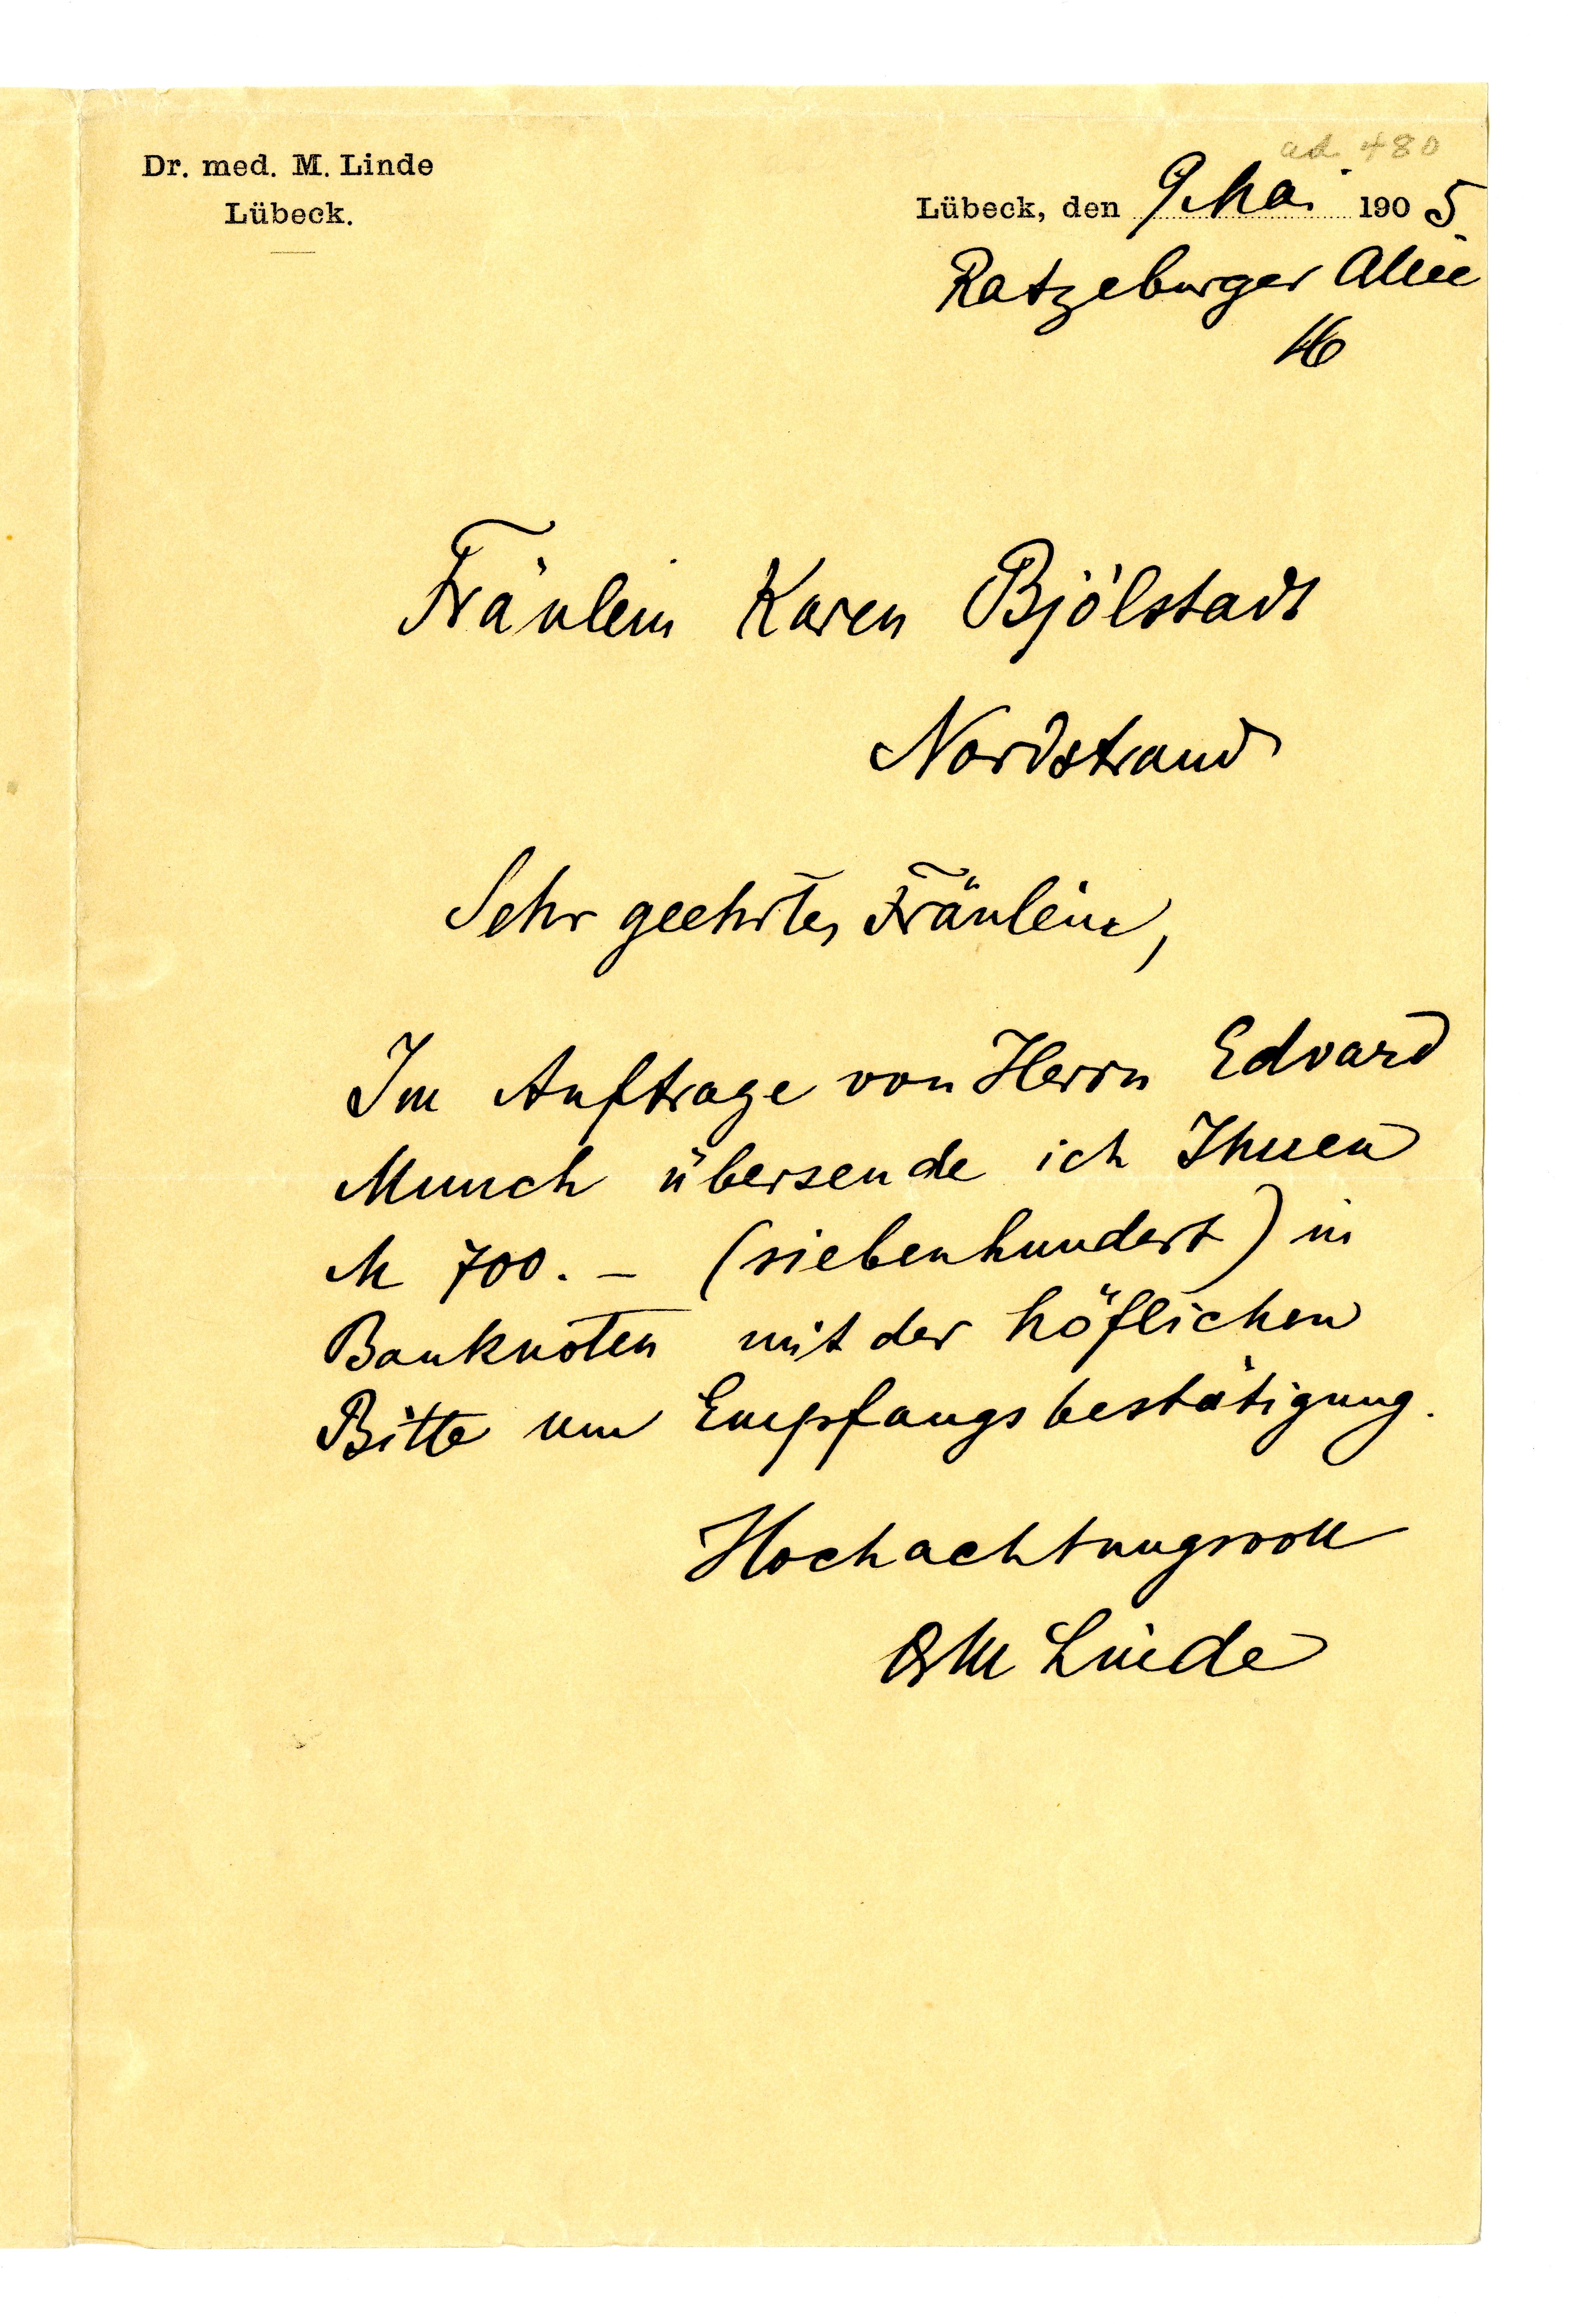 Dr. med. M. Linde
Lübeck.
ad 480
Lübeck, den 9 Mai 1905
Ratzeburger Allee
16
Fräulein Karen Bjölstadt
Nordstrand
Sehr geehrtes Fräulein,
Im Auftrage von Herrn Edvard
Munch übersende ich Ihnen
M 700. – (siebenhundert) in
Banknoten mit der höflichen
Bitte um Empfangsbestätigung.
Hochachtungsvoll
Dr M Linde